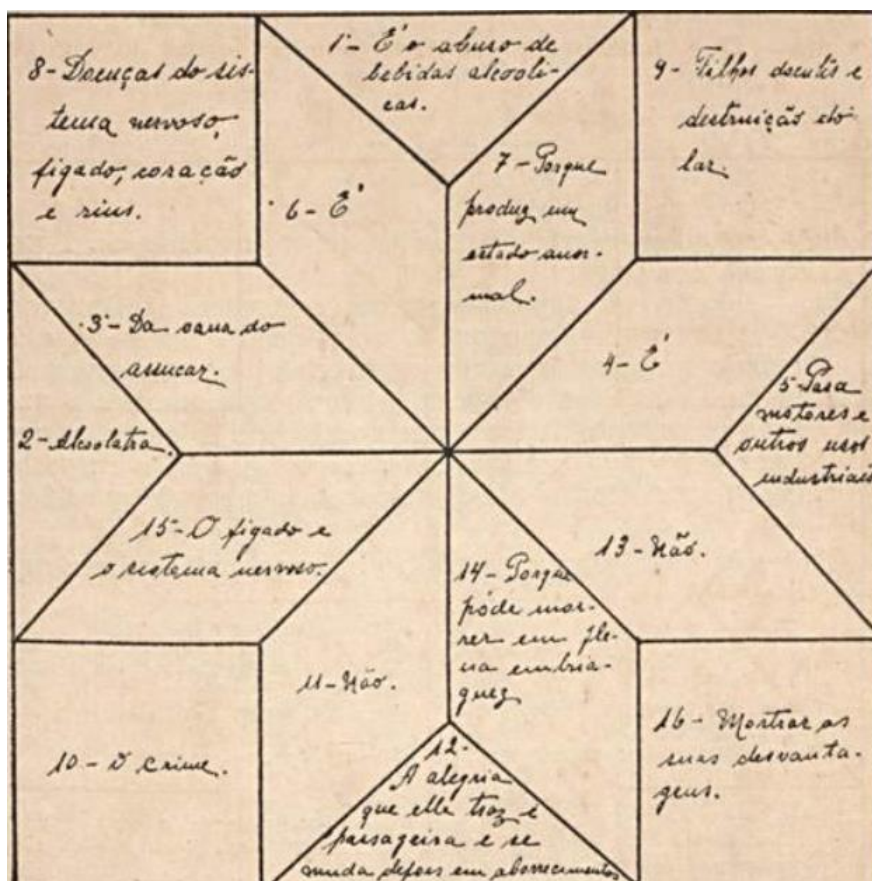 8 - Doenças do sis-
tema nervoso,
figado, coração
e rins.
1 - É o abuso de
bebidas alcooli-
cas.
9 - Filhos doentis e
destruição do
lar.
6 - É
7 - Porque
produz um
estado anor-
mal.
3 - Da cana do
assucar.
4 - É
5 - Para
motores e
outros usos
industriais
2 - Alcolatra.
15 - O figado e
o sistema nervoso.
13 - Não.
14 - Porque
póde mor-
rer em ple-
na embria-
guez
11 - Não.
10 - O crime.
12 -
A alegria
que elle traz é
passageira e se
muda depois em aborrecimentos
16 - Mostrar as
suas desvanta-
gens.